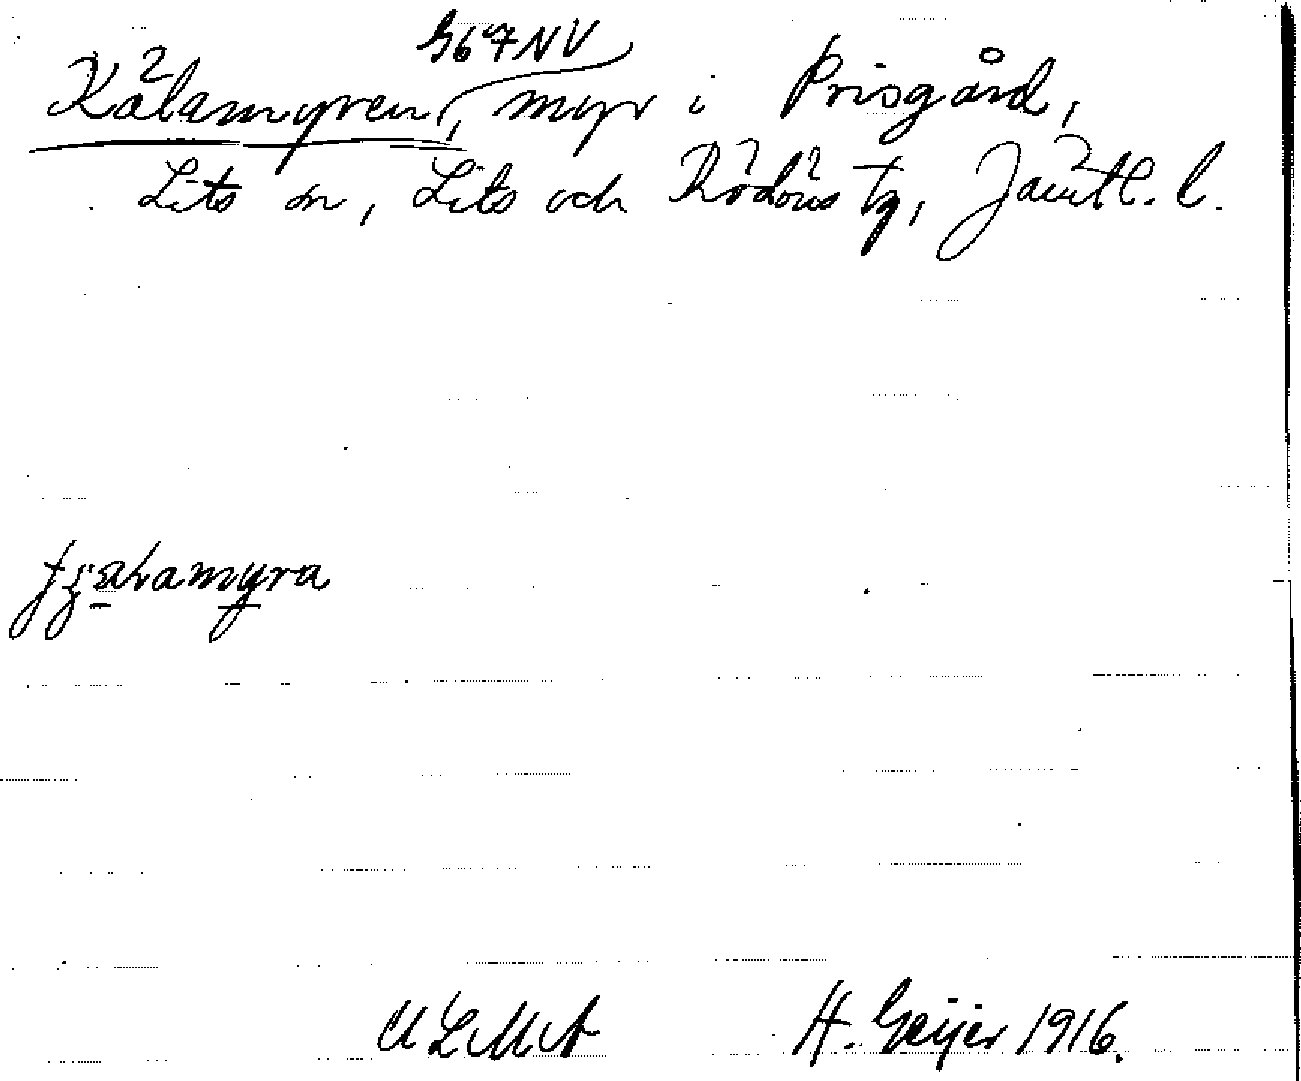 G67NV
Kälamyren, myr i Prisgård,
Lits sn, Lits och Rödöns tg, Jämtl. l.
ULMA H. Geijer 1916.